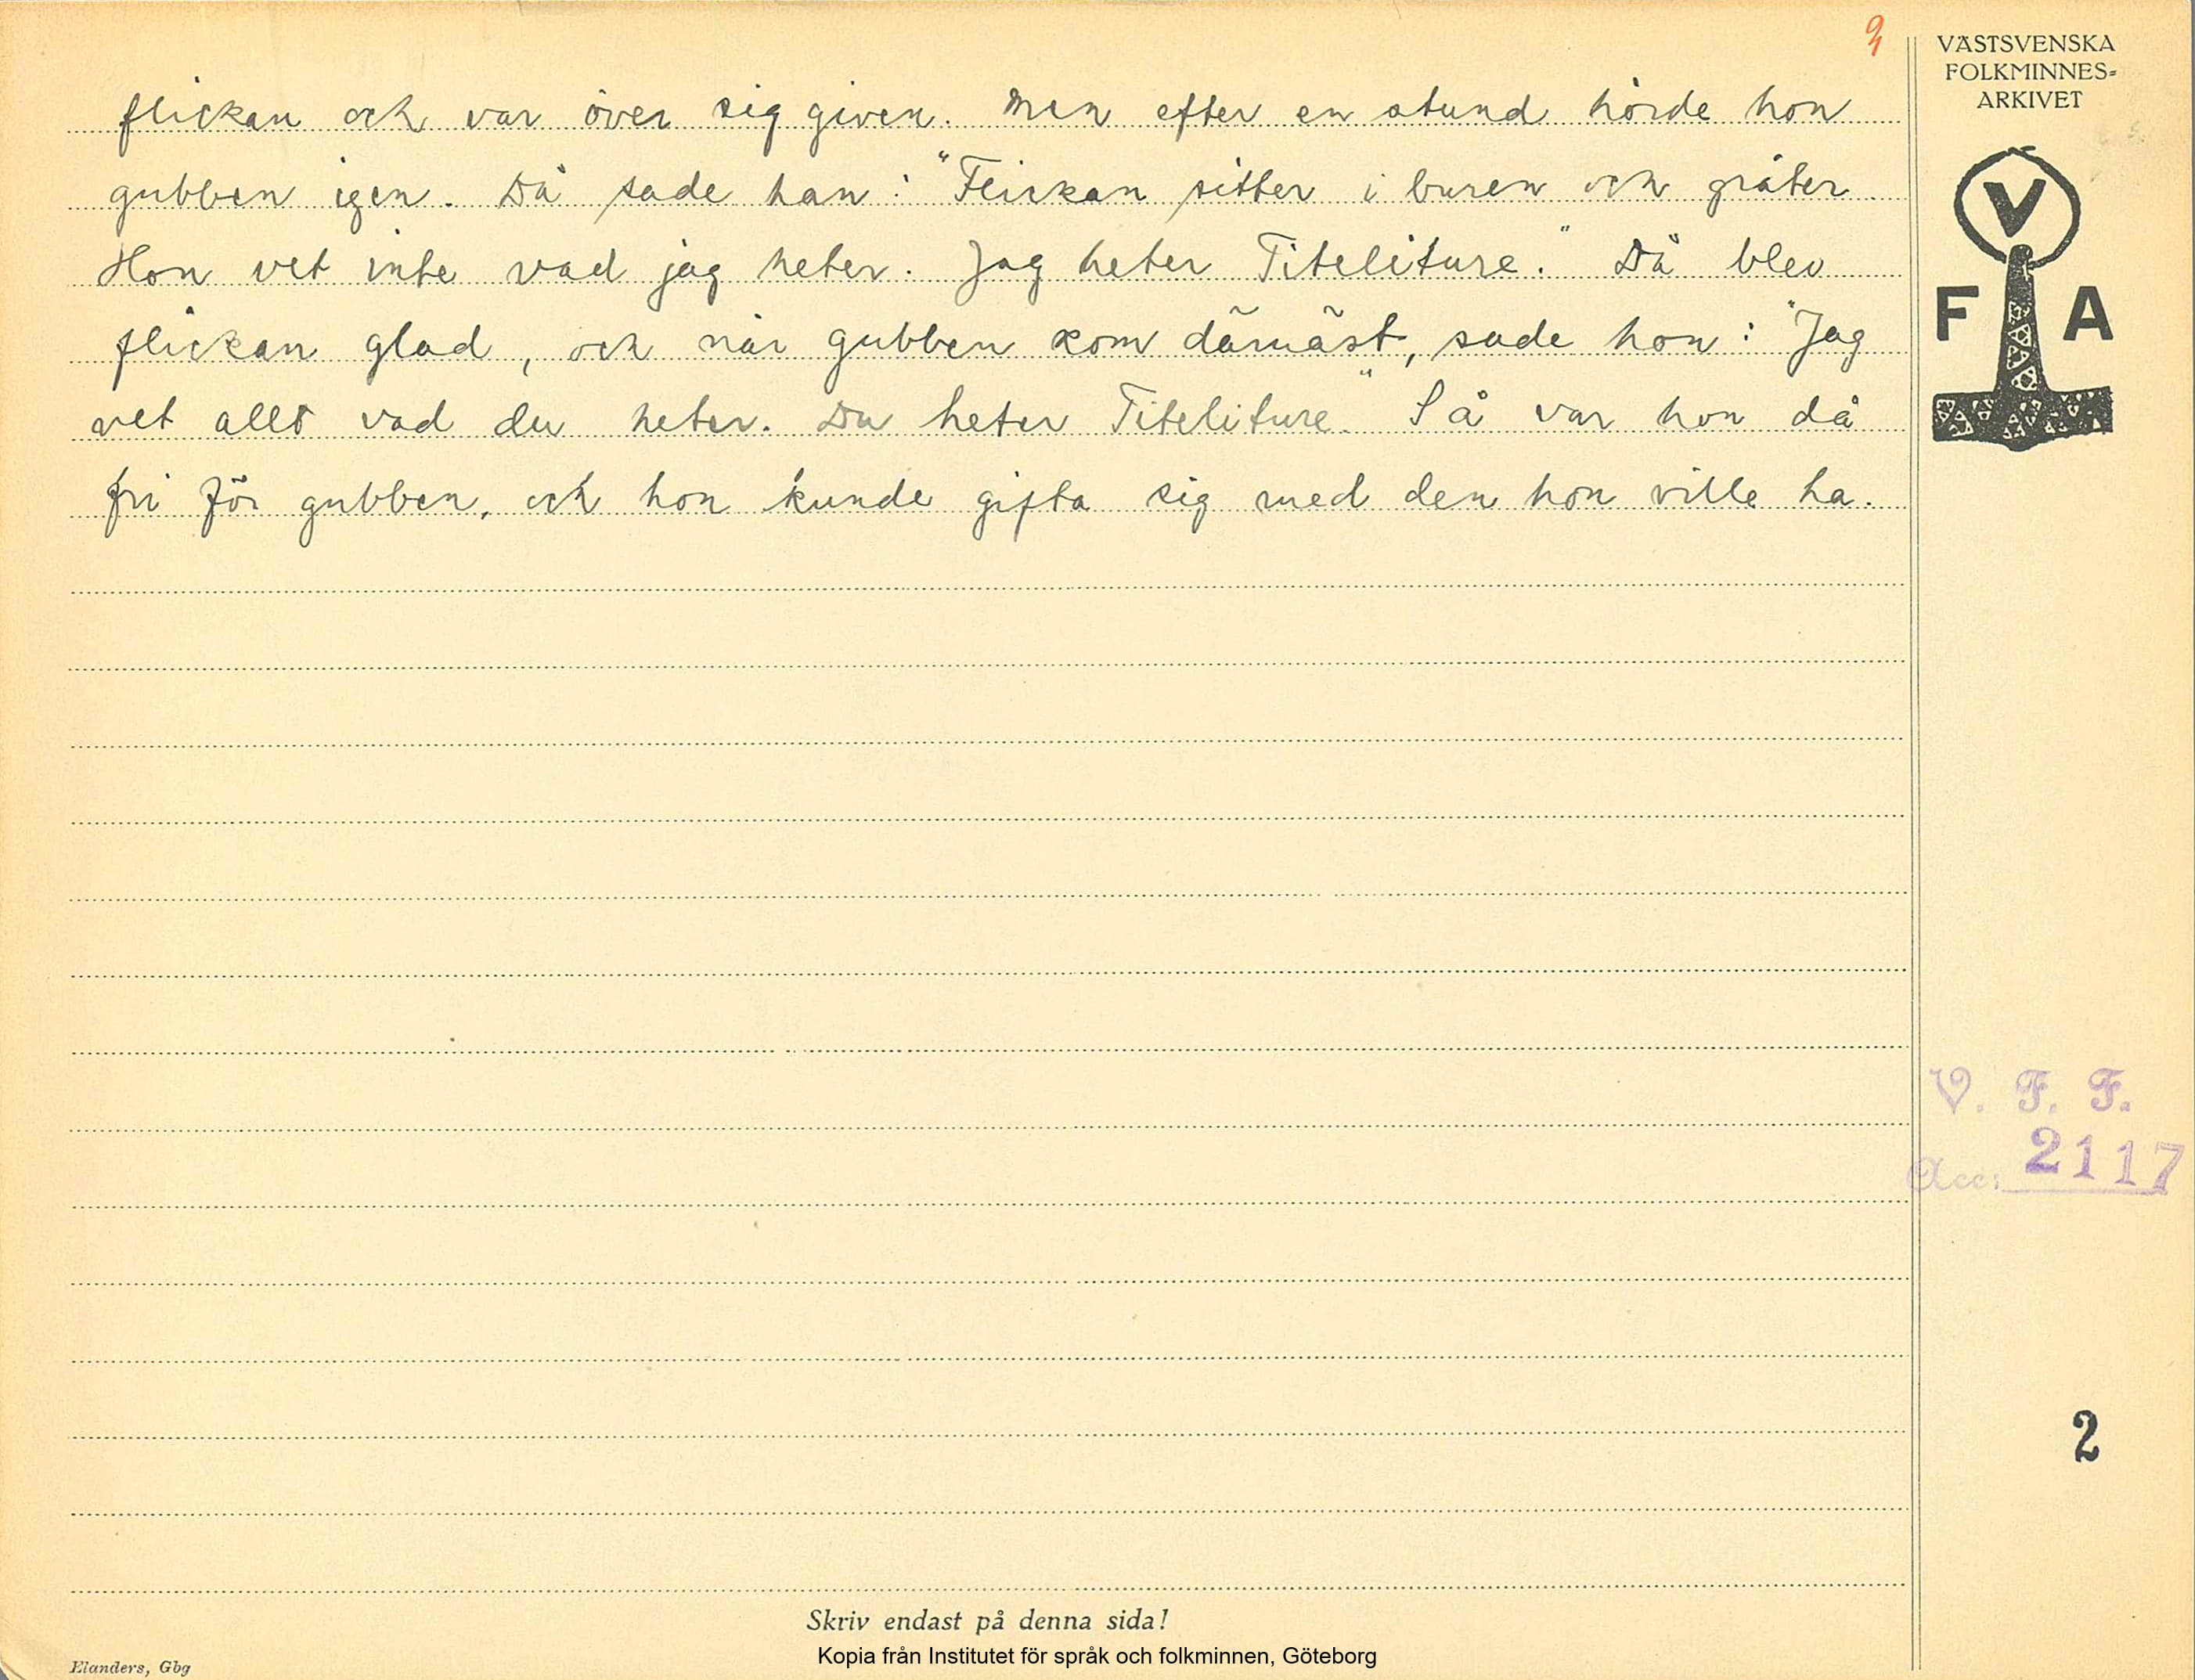 flickan och var över sig given. Men efter en stund hörde hon
gubben igen. Då sade han: "Flickan sitter i buren och gråter.
Hon vet inte vad jag heter. Jag heter Titeliture." Då blev
flickan glad, och när gubben kom därnäst, sade hon: "Jag
vet allt vad du heter. Du heter Titeliture." Så var hon då
fri för gubben, och hon kunde gifta sig med den hon ville ha.
VÄSTSVENSKA
FOLKMINNES-
ARKIVET
V
F A
V. F. F.
Acc: 2117
2
Skriv endast på denna sida!
Kopia från Institutet för språk och folkminnen, Göteborg
Elanders, Gbg